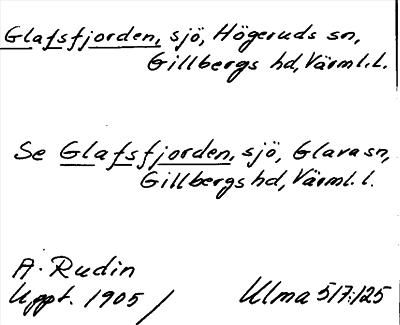 Glafsfjorden, sjö, Högeruds sn,
Gillbergs hd, Värml.l.
Se Glafsfjorden, sjö, Glava sn,
Gillbergs hd, Värml.l.
A. Rudin
Uppt. 1905 /
Ulma 517:125